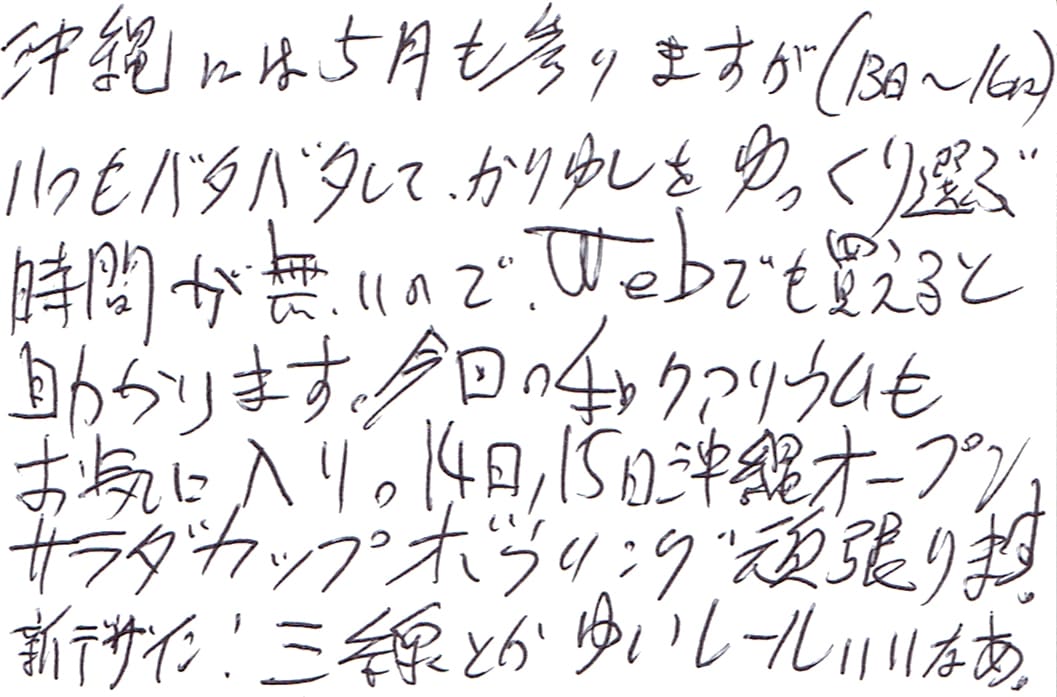 沖縄には5月も参りますが(13日~16日)
いつもバタバタして、かりゆしをゆっくり選ぶ
時間が無いので、Webでも買えると
助かります。今回のアクアリウムも
お気に入り。14日,15日沖縄オープン
サラダカップボウリング頑張ります。
新デザイン!三線とかゆいレールいいなあ。